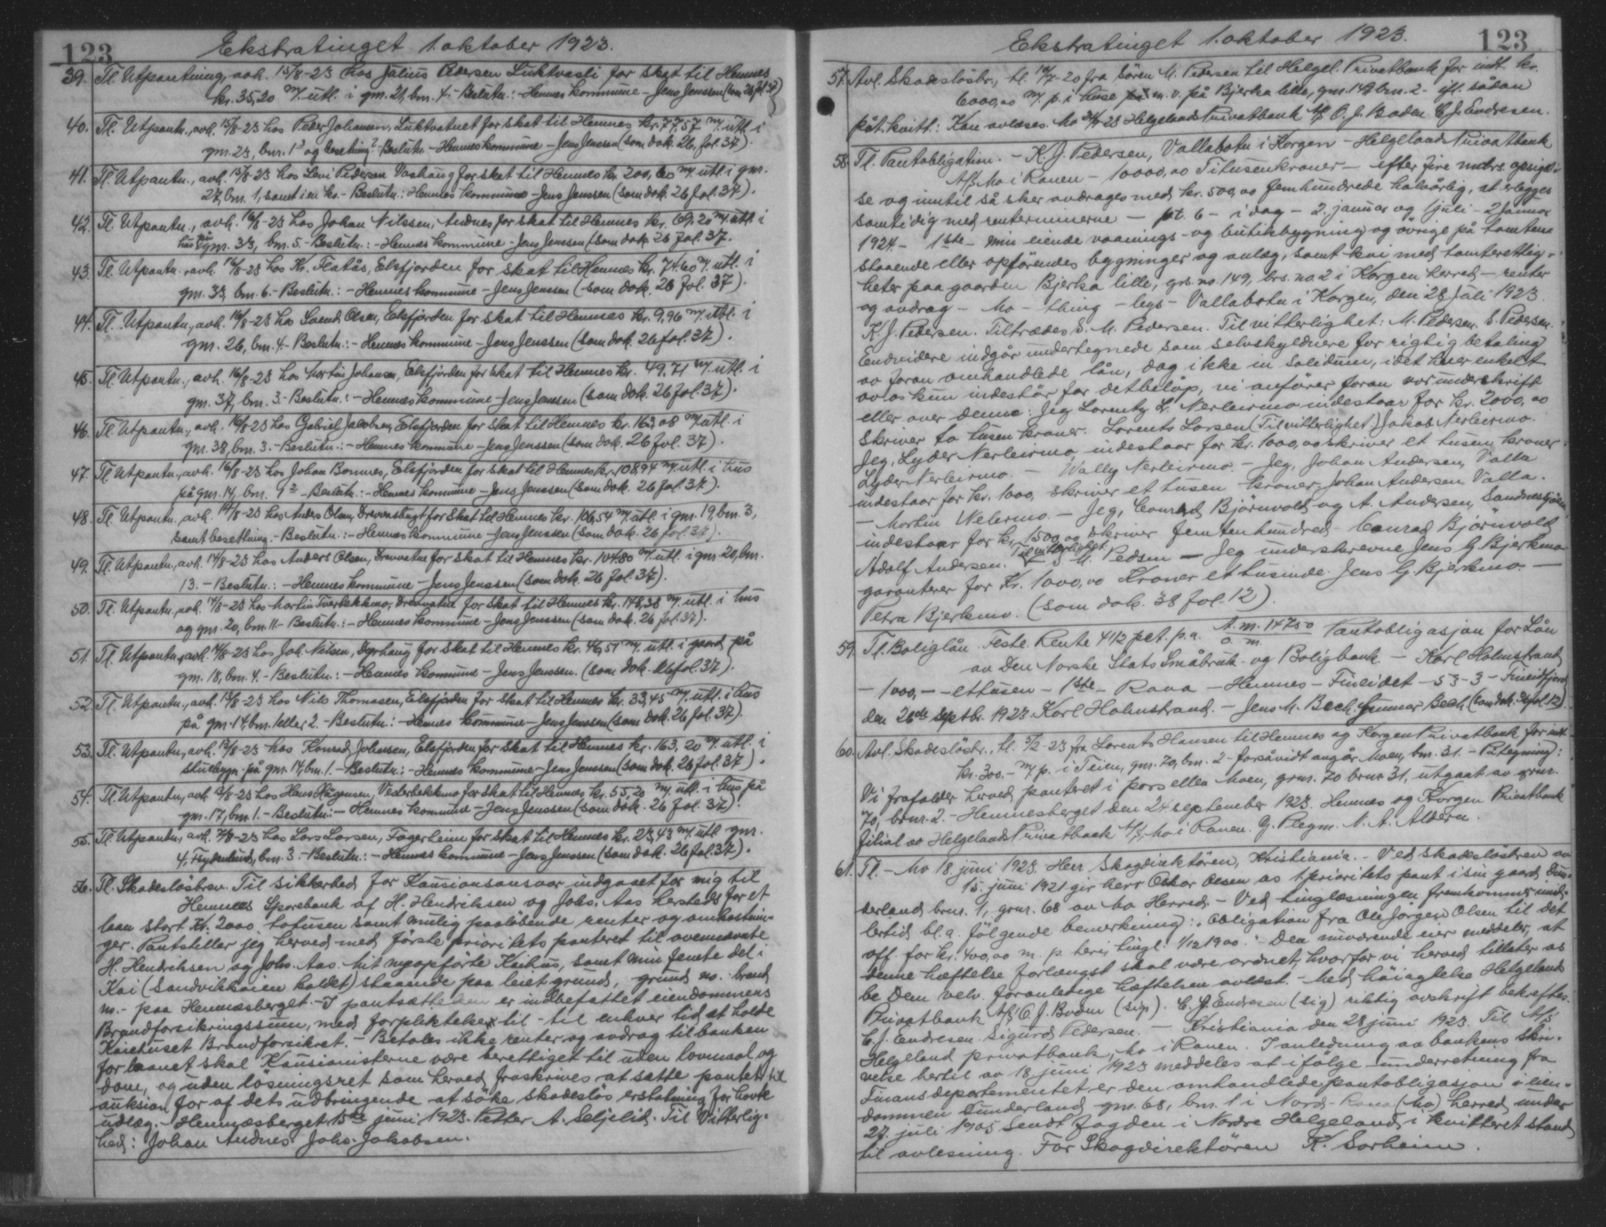 123 Ekstratinget 1. oktober 1923.
39. Tl. Utpantning, avh. 15/8-23 hos Julius Pedersen Luktvasli for skat til Hemnes
kr. 35,20 m/ utl. i gnr. 21, bnr. 4. - Beslutn.: - Hemnes kommune - Jens Jenssen (som dok. 26 fol. 37)
40. Tl. Utpantn., avh. 15/8-23 hos Peder Johansen, Luktvatnet for skat til Hemnes kr. 77,57 m/ utl. i
gnr. 23, bnr. 1 og besetning? - Beslutn. - Hemnes kommune - Jens Jenssen (som dok. 26, fol. 37).
41. Tl. Utpantn., avh. 15/8-23 hos Leni Pedersen for skat til Hemnes kr. 200,60 m/ utl. i gnr.
27, bnr. 1, samt i en ko - Beslutn.: Hemnes kommune - Jens Jenssen (som dok. 26 fol. 37).
42. Tl. Utpantn., avh. 16/8-23 hos Johan Nilssen, Andnes for skat til Hemnes kr. 69,20 m/ utl. i
hus på gnr. 33, bnr. 5. - Beslutn.: - Hemnes kommune - Jens Jenssen (som dok. 26 fol. 37.
43. Tl. Utpantn., avh. 16/8-23 hos Kr. Flatås, Elsfjorden for skat til Hemnes kr. 74.60 m/ utl. i
gnr. 33, bnr. 6. - Beslutn.: - Hemnes kommune - Jens Jenssen (som dok. 26 fol. 37).
44. Tl. Utpantn., avh. 16/8-23 hos Olsen, Elsfjorden for skat til Hemnes kr. 9,96 m/ utl. i
gnr. 26, bnr. 4. - Beslutn.: - Hemnes kommune - Jens Jenssen (som dok. 26 fol. 37).
45. Tl. Utpantn., avh. 16/8-23 hos Martin Johansen, Elsfjorden for skat til Hemnes kr. 49,71 m/ utl. i
gnr. 37, bnr. 3. - Beslutn.: - Hemnes kommune - Jens Jenssen (som dok. 26 fol. 37).
46. Tl. Utpantn., avh. 16/8-23 hos Gabriel Jacobsen, Elsfjorden for skat til Hemnes kr. 163,08 m/ utl. i
gnr. 38, bnr. 3. - Beslutn.: - Hemnes kommune - Jens Jenssen (som dok. 26 fol. 37).
47. Tl. Utpantn., avh. 16/8-23 hos Johan Bonnes, Elsfjorden for skat til Hemnes kr. 108,94 m/ utl. i hus
på gnr. 14, bnr. 1 2 - Beslutn.: - Hemnes kommune - Jens Jenssen (som dok. 26 fol. 37).
48. Tl. Utpantn., avh. 17/8-23 hos Anders Olsen, for skat til Hemnes kr. 106,54 m/ utl. i gnr. 19, bnr. 3,
samt besetning. - Beslutn.: - Hemnes kommune - Jens Jenssen (som dok. 26 fol. 37).
49. Tl. Utpantn., avh. 17/8-23 hos Anders Olsen, Drevvatn for skat til Hemnes kr. 104.80 m/ utl. i gnr. 20, bnr.
13. - Beslutn.: - Hemnes kommune - Jens Jenssen (som dok. 26 fol. 37).
50. Tl. Utpantn., avh. 17/8-23 hos Martin Tverbakkmo, Drevvatn for skat til Hemnes kr. 148,38 m/ utl. i hus
og gnr. 20, bnr. 11. - Beslutn.: - Hemnes kommune - Jens Jenssen (som dok. 26 fol. 37).
51. Tl. Utpantn., avh. 17/8-23 hos Joh. Nilsen, Dyrhaug for skat til Hemnes kr. 46,51 m/ utl. i gaard på
gnr. 18, bnr. 4. - Beslutn.: - Hemnes kommune - Jens Jenssen. (som dok. 26 fol. 37).
52. Tl. Utpantn., avh. 17/8-23 hos Nils Thomassen, Elsfjorden for skat til Hemnes kr. 33,45 m/ utl. i hus
på gnr. 14, bnr. 1 eller 2. - Beslutn.: - Hemnes kommune - Jens Jenssen (som dok. 26 fol. 37).
53. Tl. Utpantn., avh. 17/8-23 hos Konrad Johnsen, Elsfjorden for skat til Hemnes kr. 163,20 m/ utl. i
stuebygn. på gnr. 14, bnr. 1. - Beslutn.: - Hemnes kommune - Jens Jenssen (som dok. 26 fol. 37).
54. Tl. Utpantn., avh. 17/8-23 hos Hans Jürgensen, for skat til Hemnes kr. 55,20 m/ utl. i hus på
gnr. 17, bnr. 1. - Beslutn.: - Hemnes kommune - Jens Jenssen (som dok. 26 fol. 37).
55. Tl. Utpantn., avh. 7/8-23 hos Lars Larsen, Fagerheim for skat til Hemnes kr. 23,43 m/ utl. gnr.
4, Frydenlund, bnr. 3. - Beslutn.: - Hemnes kommune - Jens Jenssen (som dok. 26 fol. 37).
56. Tl. Skadesløsbrev. Til sikkerhed for Kausionsansvar indgaaet for mig til
Hemnes Sparebank af H. Hendriksen og Johs. Aas herstedt for et
laan stort Kr. 2000 totusen samt mulig paaløbende renter og omkostnin-
ger. Pantstiller jeg herved med første prioritets panteret til ovennævnte
H. Hendriksen og Johs. Aas mit nyopførte Kaihus, samt min eiende del i
Kai (Sandvikkaien kaldet) staaende paa leiet grund, grund no. brand
nr. - paa Hemnesberget - I pantsættelsen er indbefattet eiendommens
Brandforsikringssum, med forpliktelse til - til enhver tid at holde
Kaiehuset Brandforsikret. - Betales ikke renter og avdrag til banken
for laanet skal Kausionisterne være berettiget til uten lovmaal og
dom, og uden løsningsret som herved fraskrives at sætte pantet til
auksion for af dets udbringende at søke skadesløs erstatning for havte
udlæg. - Hemnesberget 15de juni 1923. Petter A. Seljelid. Til Vitterlig-
hed: Johan Andnes Johs. Jakobsen.
Ekstratinget 1. oktober 1923. 123
57. Avl. Skadesløsbr., tl. 14/7-20 fra Søren M. Pedersen til Helgel. Privatbank for indt. kr.
6000,00 m/ p. i huse m. v. på Bjerka lille, gnr. 149 bnr. 2 - eft. sådan
påt. kvitt: Kan avlæses. Mo 24/9-23 Helgelands Privatbank A/S O. J. Boden E. J. Endresen.
58. Tl. Pantobligation. - K. J. Pedersen, Vallabotn i Korgen - Helgelands Privatbank
A/S Mo i Ranen - 10000,00 Titusenkroner - efter fire mndrs. opsigel-
se og inntil så sker avdrages med kr. 500,00 femhundrede halvårlig, at erlegges
samtidig med renterminerne - pt. 6 - i dag - 2. januar og 1 juli - 2 januar
1924 - 1ste - min eiende vaanings- og butikbygning og øvrige på tomten
staaende eller opførendes bygninger og anlæg, samt kai med tomterettig-
heter paa gaarden Bjerka lille, grs. no. 149, brs. no 2 i Korgen herred - renter
og avdrag - Mo - thing - legs - Vallabotn i Korgen, den 28 Juli 1923.
K. J. Pedersen. Tiltrædes S. M. Pedersen. Til vitterlighet: M. Pedersen. E. Pedersen.
Endvidere indgår undertegnede som selvskyldnere for rigtig betaling
av foran omhandlede lån, dog ikke in solidum, idet hver enkelt
av os kun indestår for det beløp, vi anfører foran vor underskrift
eller over denne: Jeg Lorentz L. Nerleirmo indestaar for kr. 2000,00
skriver to tusen kroner. Lorents Larsen (Til vitterlighet) Jakob Nerleirmo.
Jeg, Lyder Nerleirmo, indestaar for kr. 1000,00 skriver et tusen kroner.
Lyder Nerleirmo - Wally Nerleirmo - Jeg, Johan Andersen, Valla
indestaar for kr. 1000, skriver et tusen kroner, Johan Andersen Valla.
- Mortin Nelermo - Jeg, Conrad Bjørnvold og A. Andersen,
indestaar for kr. 1500,00 skriver femtenhundred - Conrad Bjørnvold
Adolf Andersen. Til vitterlighet S. M. Pedsen - Jeg underskrevne Jens G. Bjerkmo
garanterer for Kr. 1000,00 Kroner ettusinde Jens G. Bjerkmo. -
Petra Bjerkmo. (som dok. 38 fol. 12).
59. Tl. Boliglån. Feste Rente 4 1/2 pct. p.a. A. nr. 14750 Pantobligasjon for Lån
av Den Norske Stats Småbruk- og Boligbank - Karl Holmstrand
- 1000,- - ettusen - 1ste - Rana - Hemnes - Finneidet - 53 - 3 -
den 26de Septbr. 1923. Karl Holmstrand. - Jens M. Bech. Gunnar Bech.
60. Avl. Skadesløsbr. tl. 5/2-23 fra Lorents Hansen til Hemnes og Korgen Privatbank for
kr. 300.- m/ p. i Teien, gnr. 70, bnr. 2 - forsåvidt angår Moen, bnr. 31. - Påtegning:
Vi frafalder herved panteret i Moen, grnr. 70 brnr. 31, utgaat av grnr.
70, brnr. 2. - Hemnesberget den 24 september 1923. Hemnes og Korgen Privatbank
filial av Helgelands Privatbank A/S Mo i Ranen. G. Plegm. N. A. Aldern.
61. Tl. - Mo 18 juni 1923. Herr Skogdirektøren, Kristiania. - Ved skadesløsbrev av
15. juni 1921 gir herr Oskar Olsen os 1 prioritets pant i sin gaard Dun-
derland brnr. 1, grnr. 68 av Mo Herred. - Ved tinglæsningen fremkommer imid-
lertid bl. a. følgende bemerkning: "Obligation fra Ole Jørgen Olsen til det
off. for kr. 400,00 m. p. heri, tingl. 1/12 1900." Den nuværende eier meddeler, at
denne hæftelse forlængst skal være ordnet, hvorfor vi herved tillater os
be Dem velv. foranledige hæftelsen avlest. - Med høiagtelse Helgelands
Privatbank A/S O. J. Bodøn (sign). E. J. Endresen (sig) riktig avskrift bekreftes.
E. J. Endresen. Sigurd Pedersen. - Kristiania den 28 juni 1923. Til A/S
Helgeland privatbank, Mo i Ranen. I anledning av bankens skri-
velse hertil av 18 juni 1923 meddeles at i følge underretning fra
Finansdepartementet er den omhandlede pantobligasjon i eien-
dommen Dunderland gnr. 68, bnr. 1 i Nord-Rana (Mo) herred under
27. juli 1905 sendt fogden i Nordre Helgeland i kvitteret stand
til avlesning. For Skogdirektøren K. Sørheim.